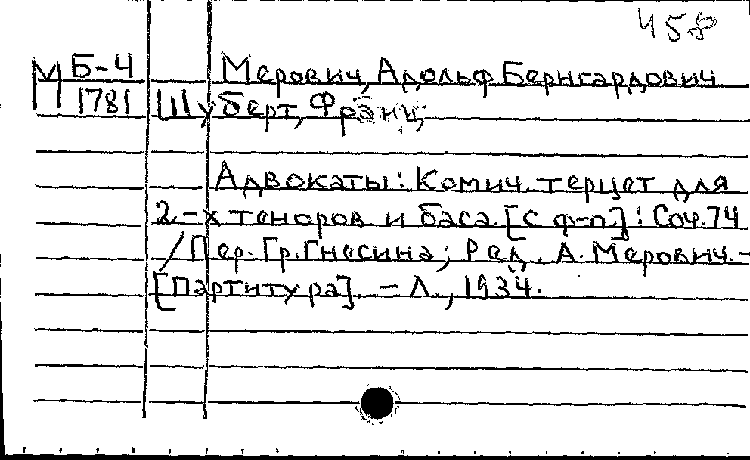 458
М Б-4 Мерович, Адольф Бернгардович
1781 Шуберт, Франц
Адвокаты: Комич. терцет для
2-х теноров и баса [с ф-п.]: Соч. 74
/ Пер. Гр. Гнесина; Ред. А. Мерович. –
[Партитура]. – Л., 1934.